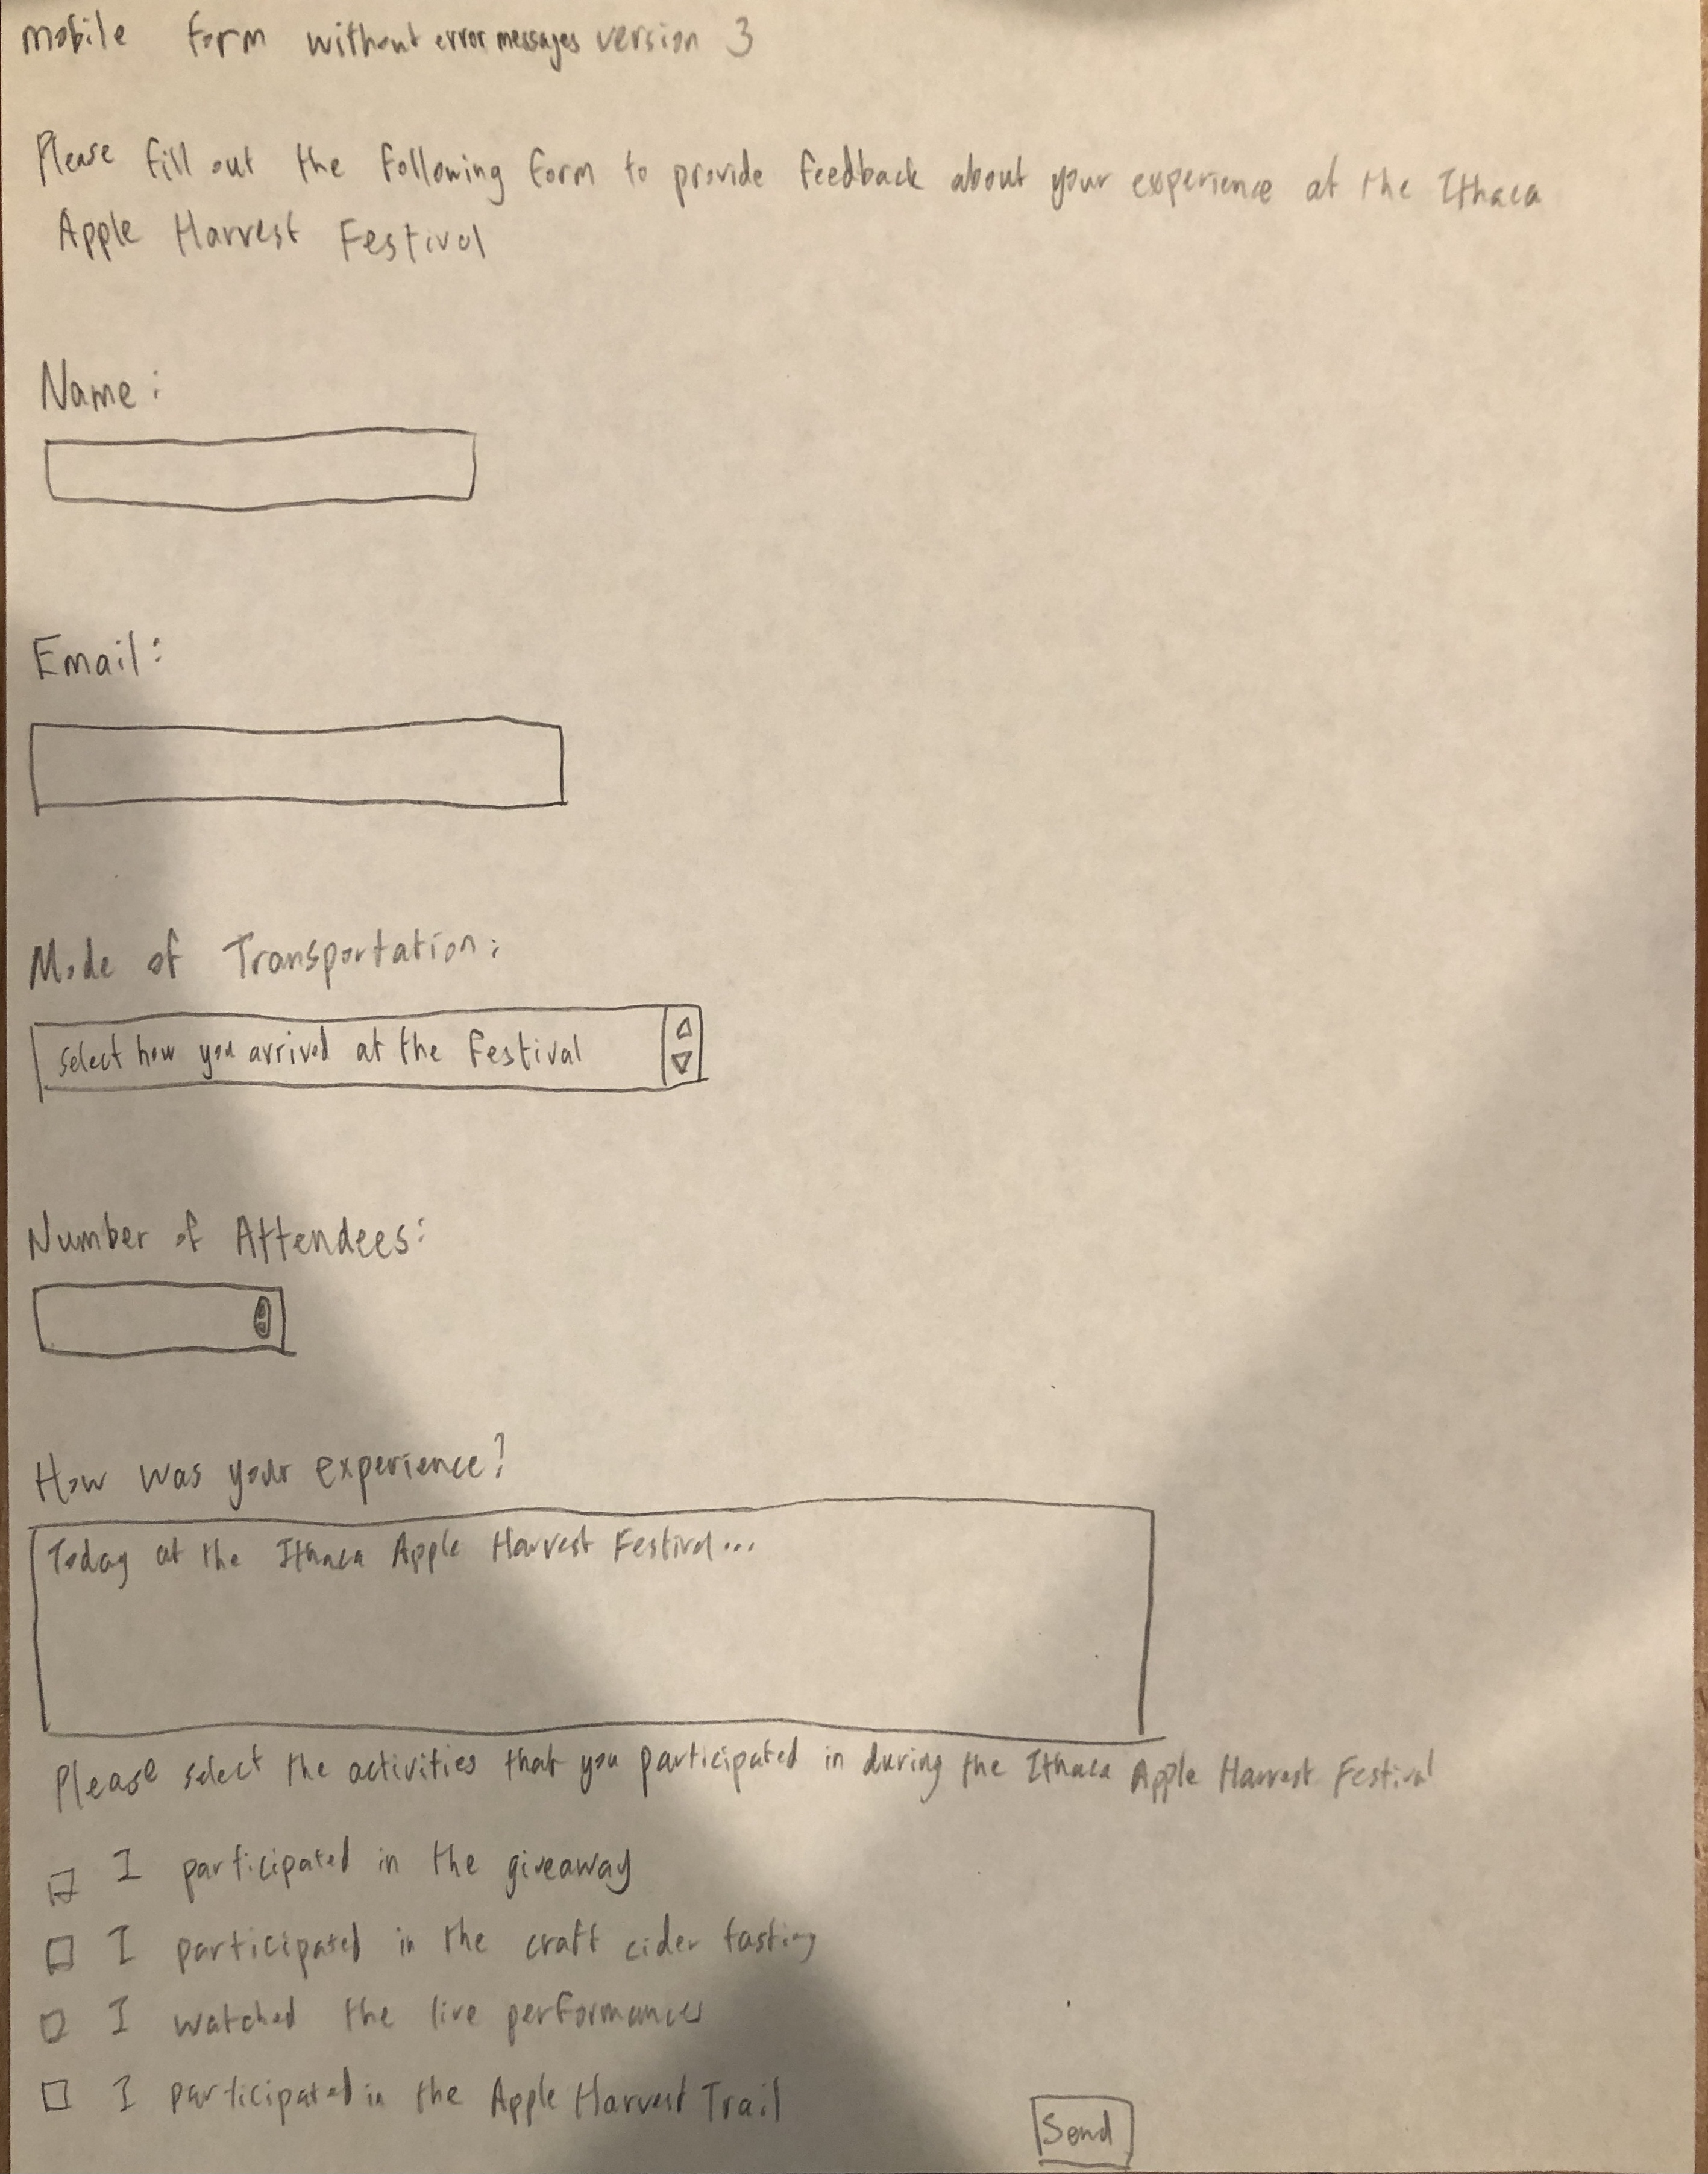 mobile form without error messages version 3
Please fill out the following form to provide feedback about your experience at the Ithaca
Apple Harvest Festival
Name:
Email:
Mode of Transportation:
Select how you arrived at the festival
Number of Attendees:
How was your experience?
Today at the Ithaca Apple Harvest Festival...
Please select the activities that you participated in during the Ithaca Apple Harvest Festival
I participated in the giveaway
I participated in the craft cider tasting
I watched the live performances
I participated in the Apple Harvest Trail
Send